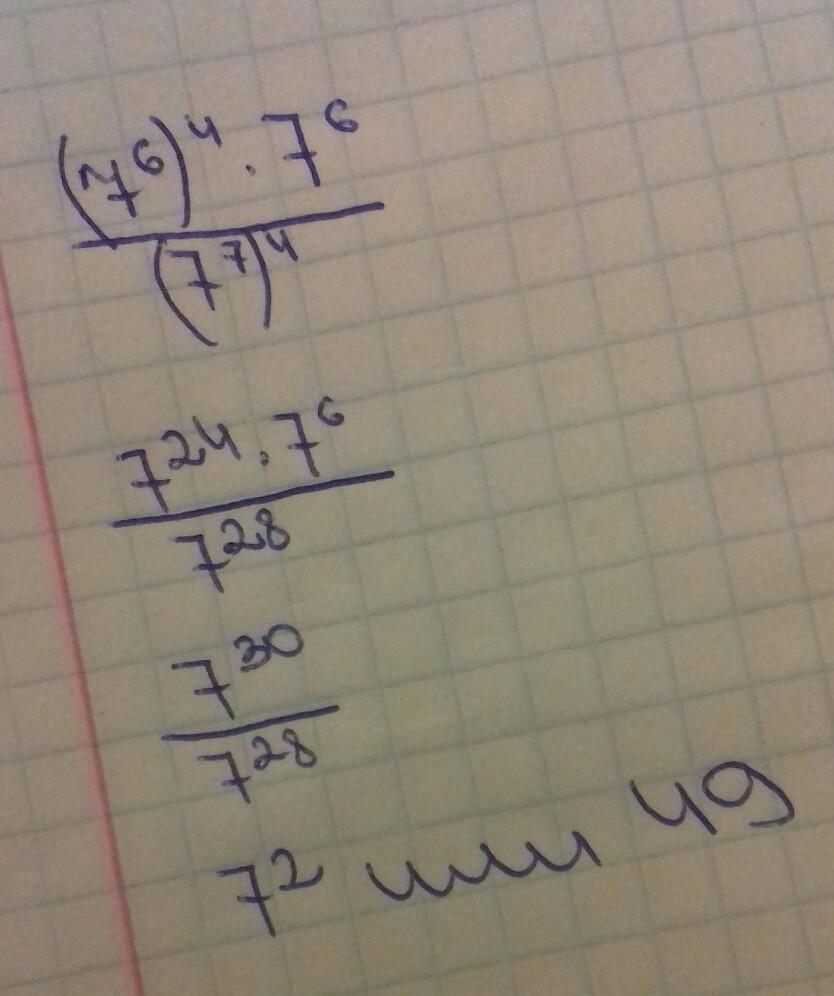 (7⁶)⁴ · 7⁶
(7⁷)⁴
7²⁴ · 7⁶
7²⁸
7³⁰
7²⁸
7² или 49